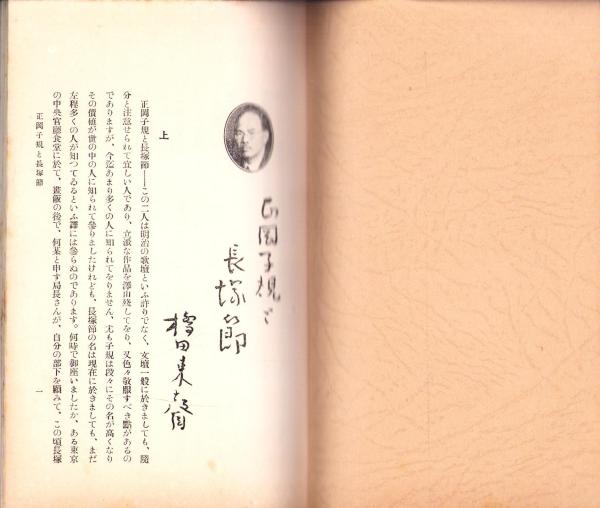 正岡子規と
長塚節
橋田東聲
上
正岡子規と長塚節――この二人は明治の歌壇といふ許りでなく、文壇一般に於きましても、隨
分と注意せられて宜しい人であり、立派な作品を澤山殘してをり、又色々敬服すべき點があるの
でありますが、今迄あまり多くの人に知られてをりません、尤も子規は段々にその名が高くなり
その價値が世の中の人に知られて參りましたけれども、長塚節の名は現在に於きましても、まだ
左程多くの人が知つてゐるといふ譯には參らぬのであります。何時で御座いましたか、ある東京
の中央官廳食堂に於て、晝飯の後で、何某と申す局長さんが、自分の部下を顧みて、この頃長塚
正岡子規と長塚節
一